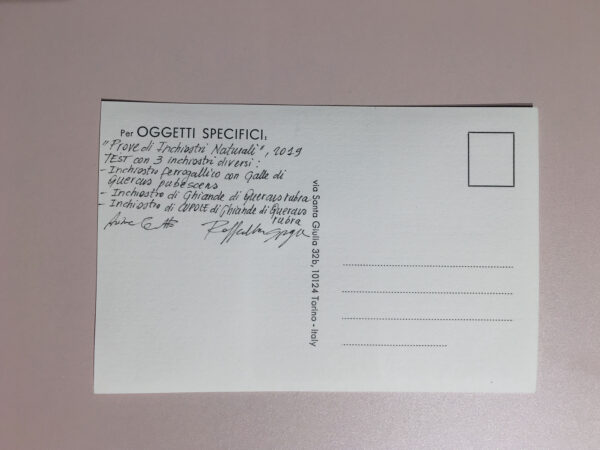 Per OGGETTI SPECIFICI:
"Prove di Inchiostri Naturali", 2019
TEST con 3 inchiostri diversi:
- Inchiostro ferrogallico con Galle di
Quercus pubescens
- Inchiostro di Ghiande di Quercus rubra
- Inchiostro di CUPOLE di Ghiande di Quercus
rubra
Raffaella
via Santa Giulia 32b, 10124 Torino - Italy